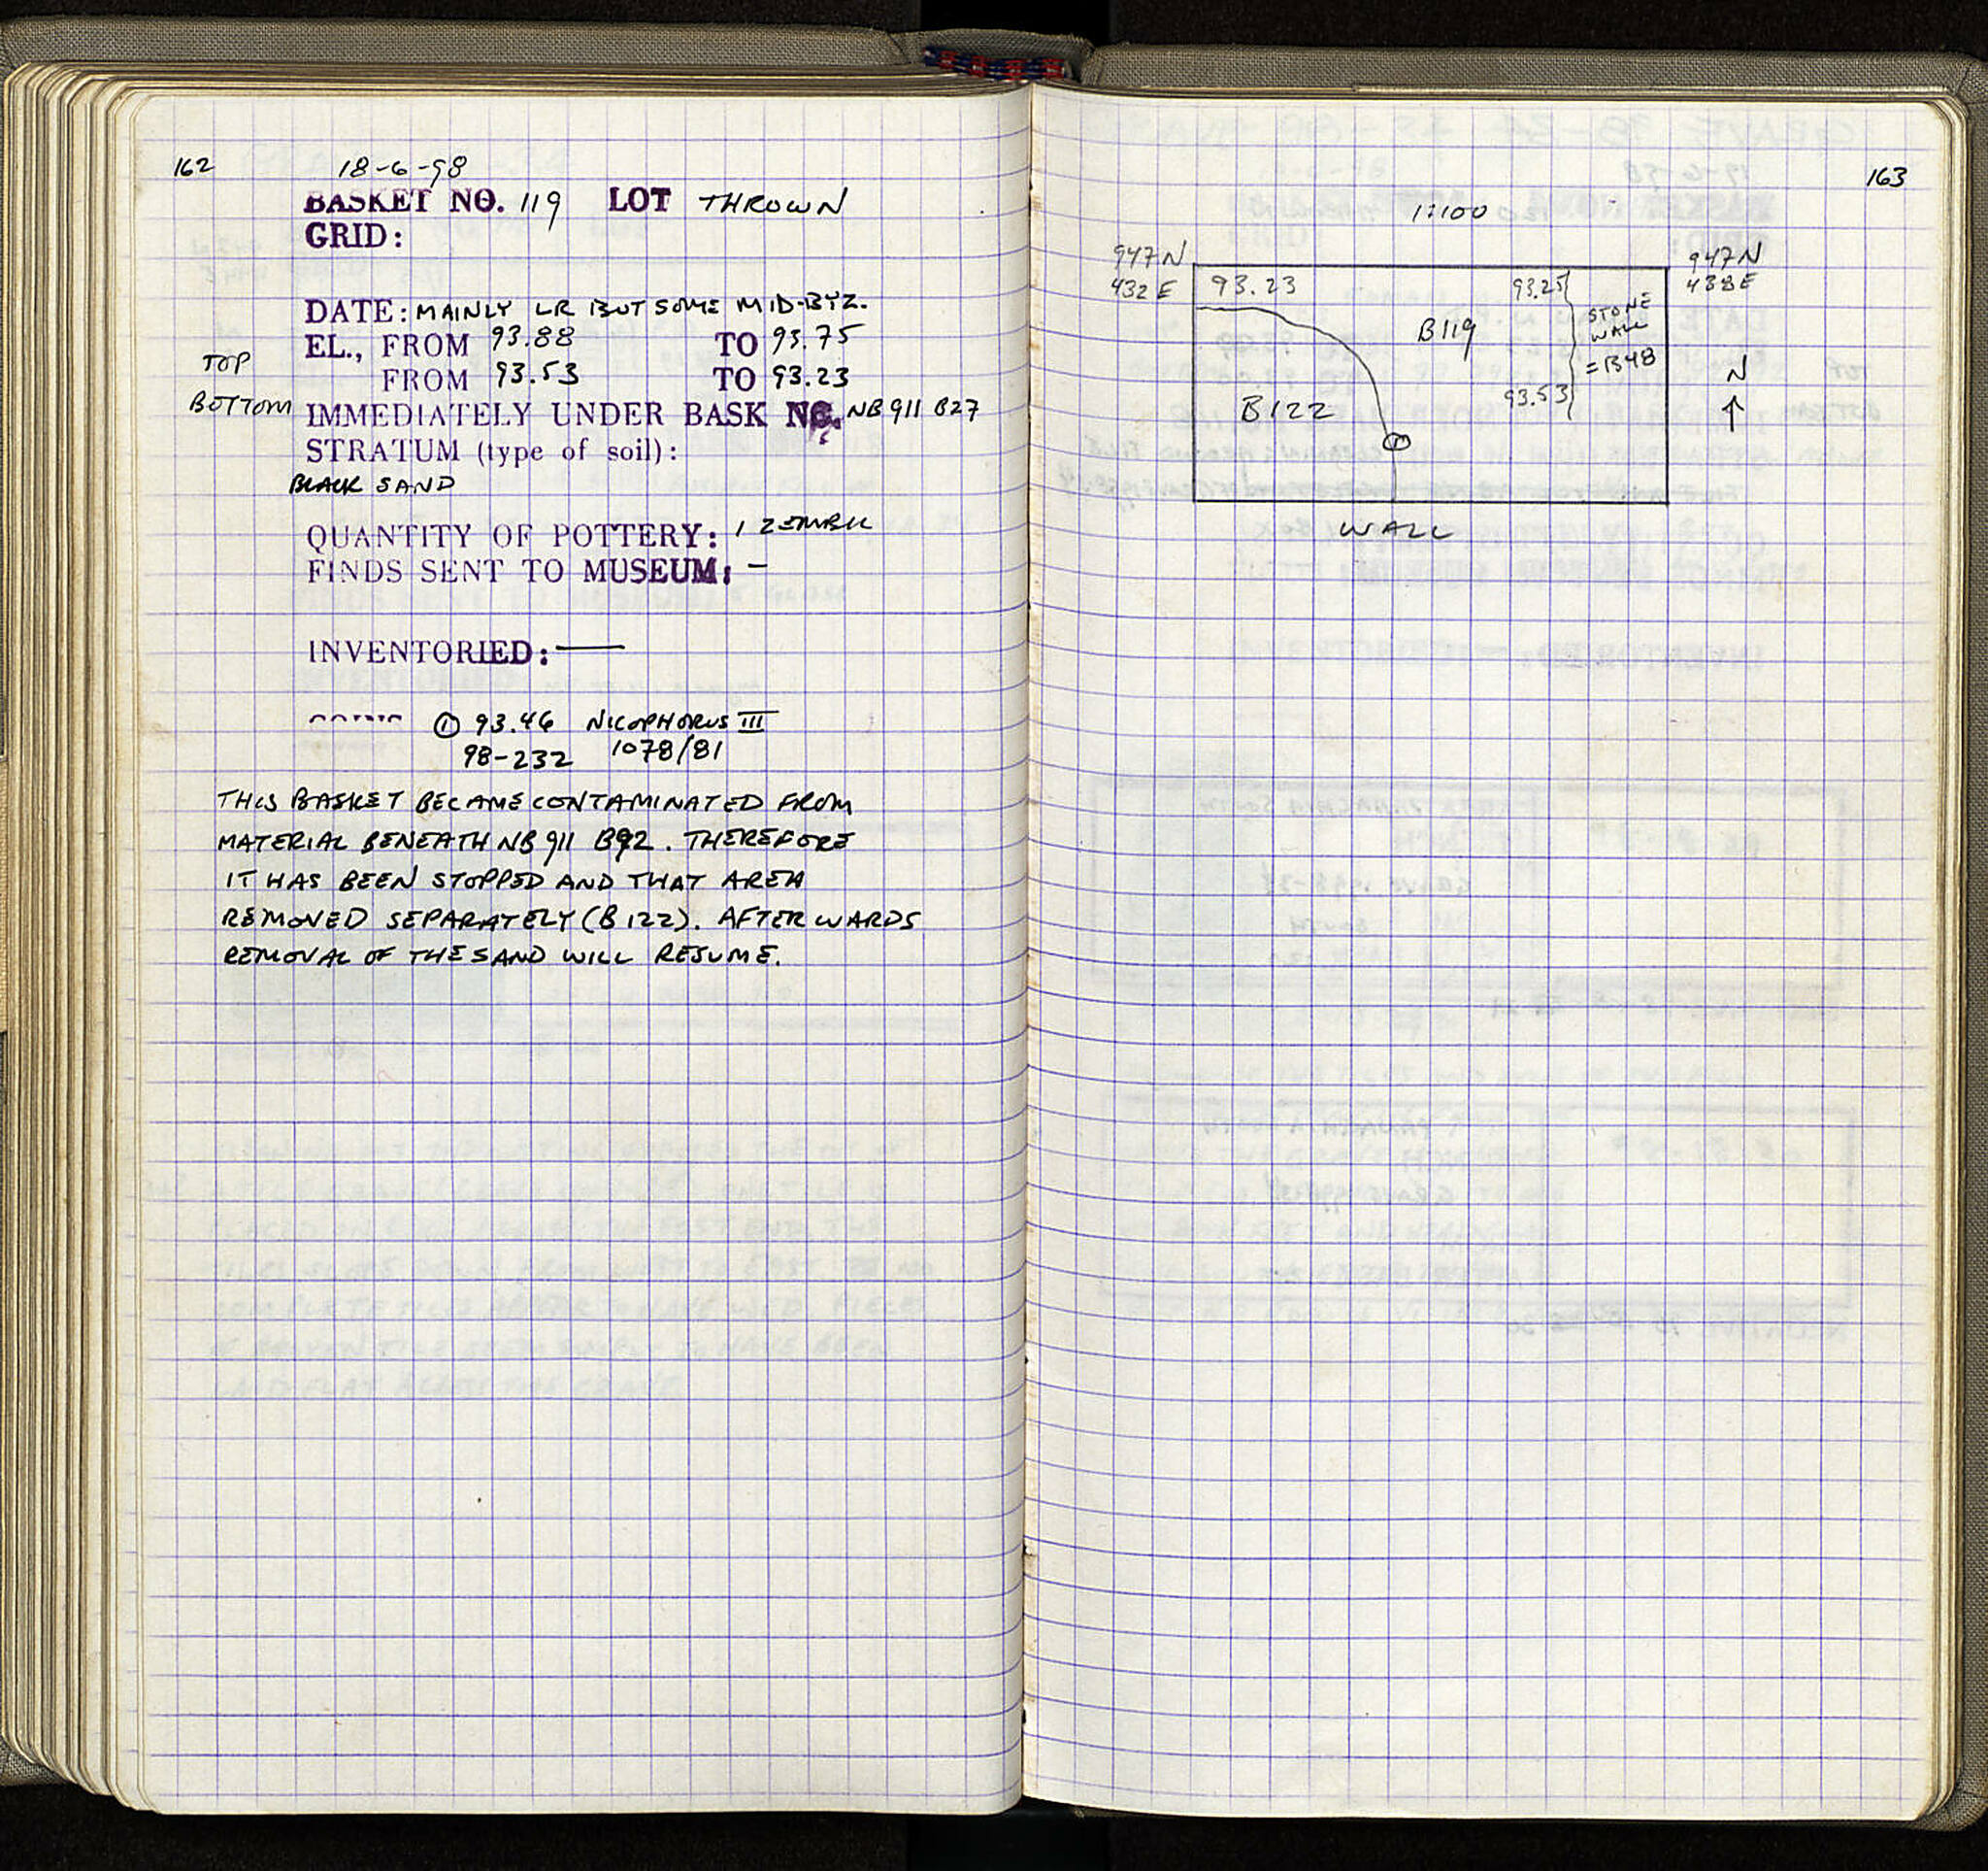 162 18-6-98
BASKET NO. 119 LOT THROWN
GRID:
DATE: MAINLY LR BUT SOME MID-BYZ.
EL., FROM 93.88 TO 93.75
TOP
FROM 93.53 TO 93.23
BOTTOM IMMEDIATELY UNDER BASK NO. NB 911 B27
STRATUM (type of soil):
BLACK SAND
QUANTITY OF POTTERY: 1 ZEMBIL
FINDS SENT TO MUSEUM: -
INVENTORIED: —
① 93.46 NICOPHORUS III
98-232 1078/81
THIS BASKET BECAME CONTAMINATED FROM
MATERIAL BENEATH NB 911 B92. THEREFORE
IT HAS BEEN STOPPED AND THAT AREA
REMOVED SEPARATELY (B 122). AFTERWARDS
REMOVAL OF THE SAND WILL RESUME.
163
1:100
947N
432E
93.23
93.25
947N
438E
B119
STONE
WALL
=B48
N
B122
93.53
①
WALL